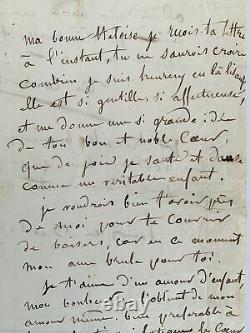 ma bonne Heloïse je reçois ta lettre
à l'instant, tu ne saurois croire
combien je suis heureux en la lisant
elle est si gentille, si affectueuse
et me donne une si grande idée
de ton bon et noble Cœur,
que de joie je saute et danse
comme un veritable enfant.
je voudrois bien t'avoir près
de moi pour te couvrir
de baisers, car en ce moment
mon ame brule pour toi.
je t'aime d'un amour d'enfant,
mon bonheur l'objet de mon
amour bien preferable à
Cœur